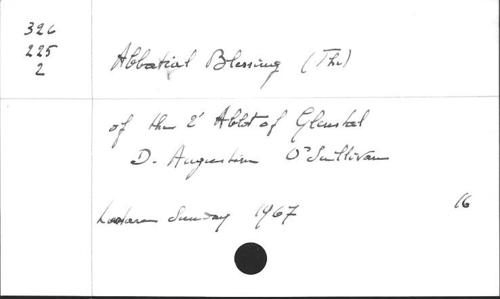 326
225
2
Abbatial Blessing (The)
of the 2' Abbot of Glenstal
D. Augustine O'Sullivan
Sunday 1967
16